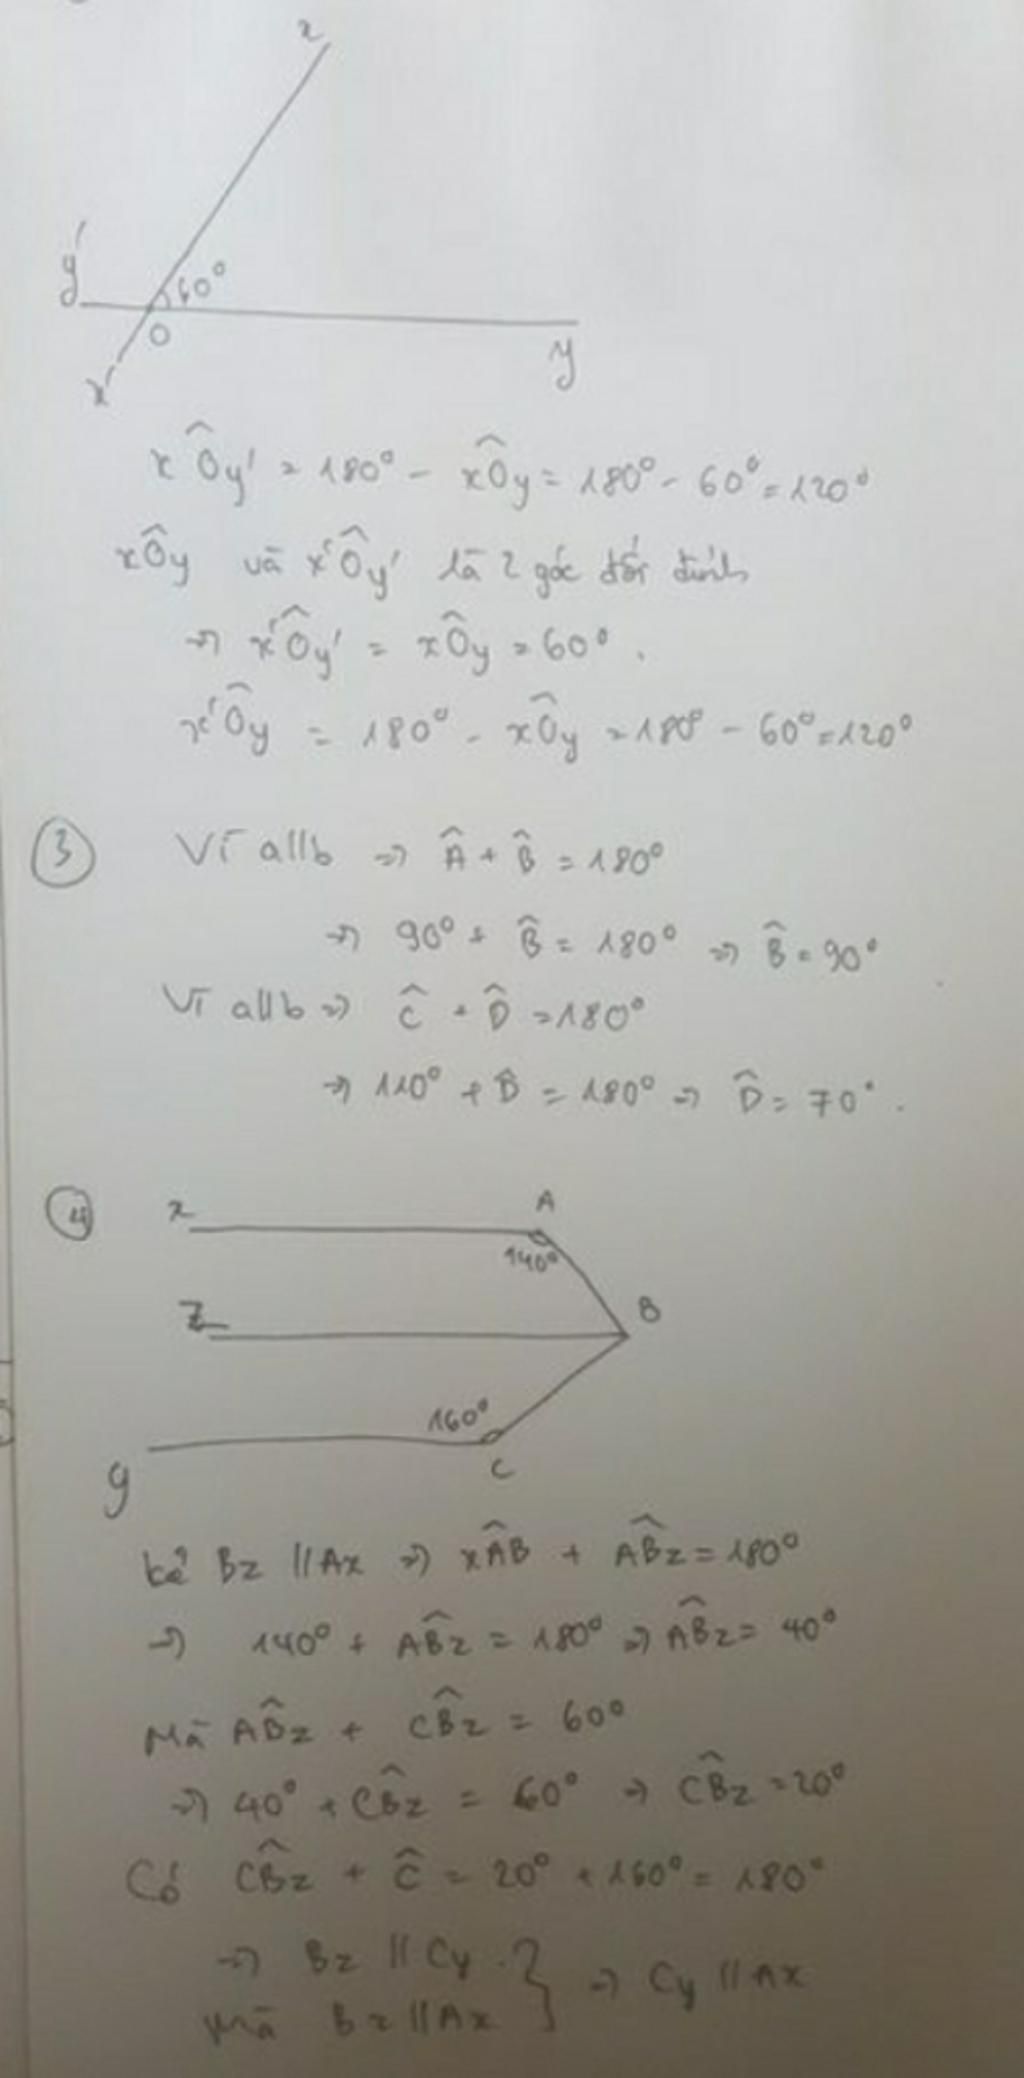 x
y'
60°
O
y
x'
xÔy' = 180° - xÔy = 180° - 60° = 120°
xÔy và x'Ôy' là 2 góc đối đỉnh
=> x'Ôy' = xÔy = 60°.
x'Ôy = 180° - xÔy = 180° - 60° = 120°
3 Vì a//b => Â + B̂ = 180°
=> 90° + B̂ = 180° => B̂ = 90°
Vì a//b => Ĉ + D̂ = 180°
=> 110° + D̂ = 180° => D̂ = 70°.
4
x A
140°
z B
160°
y C
kẻ Bz // Ax => xÂB + AB̂z = 180°
=> 140° + AB̂z = 180° => AB̂z = 40°
Mà AB̂z + CB̂z = 60°
=> 40° + CB̂z = 60° => CB̂z = 20°
Có CB̂z + Ĉ = 20° + 160° = 180°
=> Bz // Cy } => Cy // Ax
Mà Bz // Ax